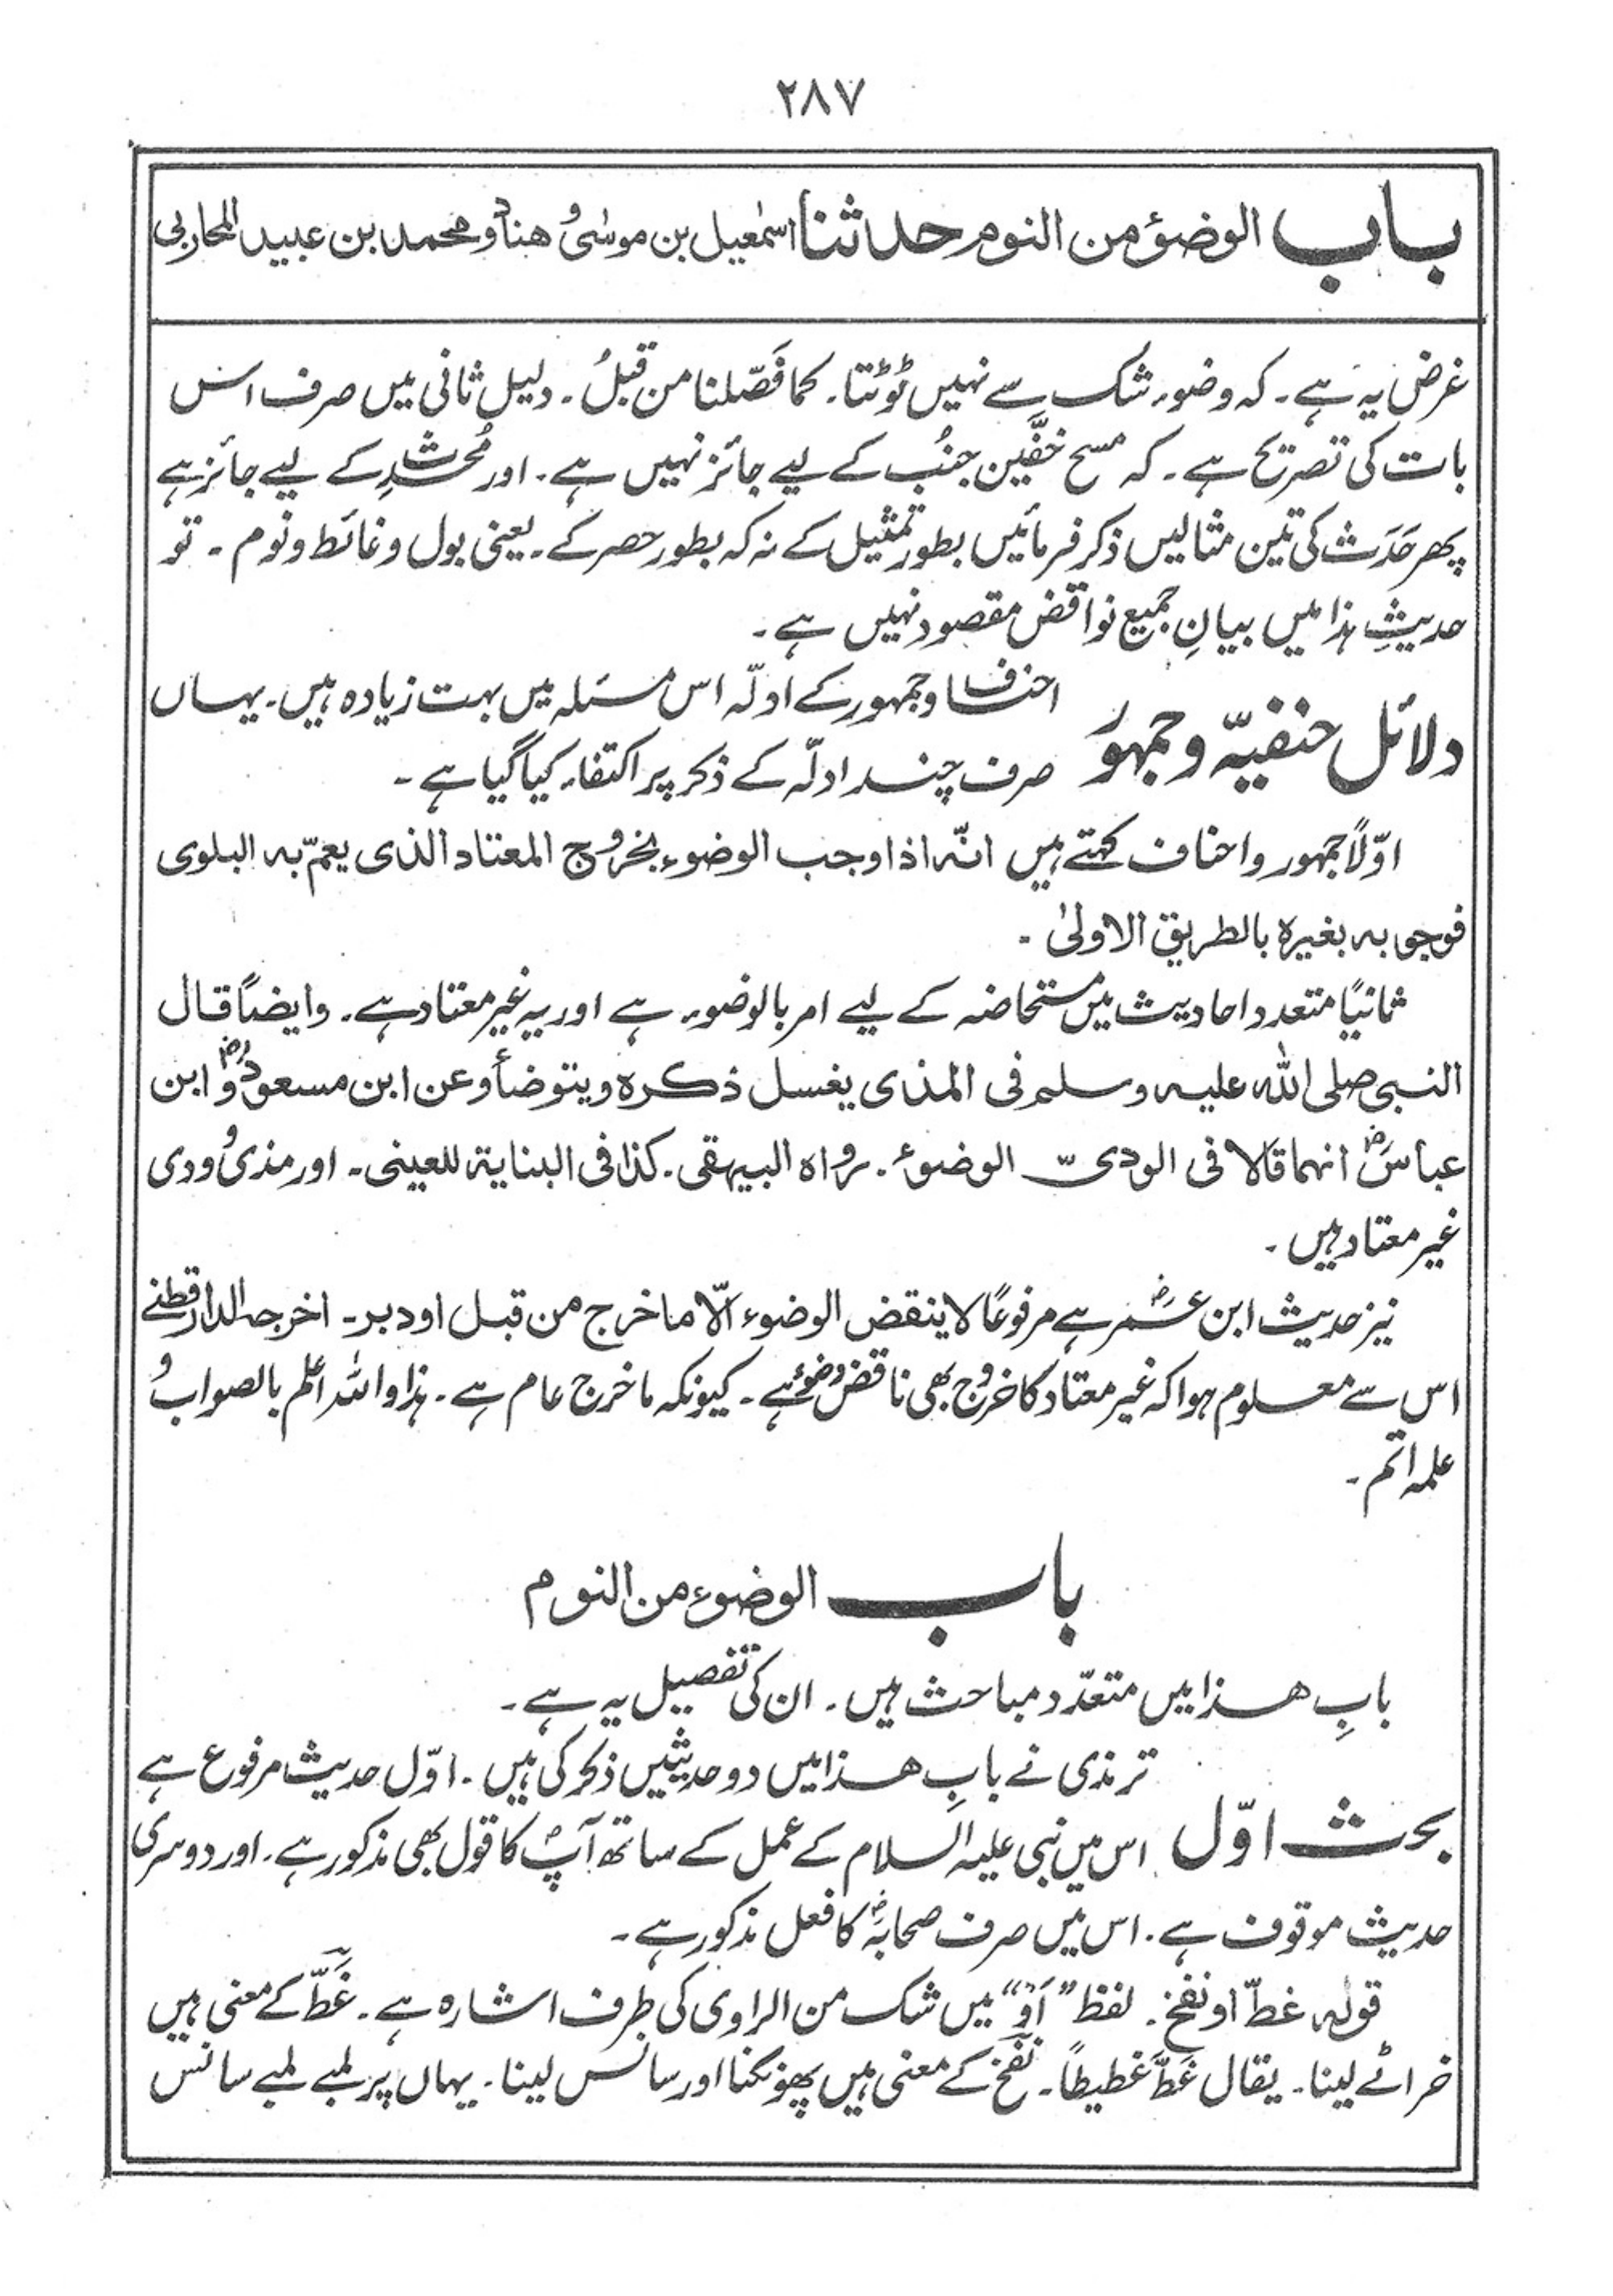 ۲۸۷
باب الوضوٴ من النوم حدثنا اسمٰعیل بن موسٰی و ھناد و محمد بن عبید المحاربی
غرض یہ ہے۔ کہ وضوء شک سے نہیں ٹوٹتا۔ کما فَصّلنا من قبلُ۔ دلیل ثانی میں صرف اس
بات کی تصریح ہے۔ کہ مسح خفَّین جنُب کے لیے جائز نہیں ہے۔ اور مُحدِث کے لیے جائز ہے
پھر حَدَث کی تین مثالیں ذکر فرمائیں بطور تمثیل کے نہ کہ بطور حصر کے۔ یعنی بول و غائط و نوم۔ تو
حدیثِ ہذا میں بیانِ جمیع نواقض مقصود نہیں ہے۔
دلائل حنفیّہ و جمہور
احناف و جمہور کے ادلّہ اس مسئلہ میں بہت زیادہ ہیں۔ یہاں
صرف چند ادلّہ کے ذکر پر اکتفاء کیا گیا ہے۔
اوّلاً جمہور و احناف کہتے ہیں انّہ اذا وجب الوضوء بخروج المعتاد الذی یعمّ بہ البلوی
فوجوبہ بغیرہ بالطریق الاولیٰ۔
ثانیًا متعدد احادیث میں مستحاضہ کے لیے امر بالوضوء ہے اور یہ غیر معتاد ہے۔ و ایضاً قال
النبی صلی اللہ علیہ وسلم فی المذی یغسل ذکرہ و یتوضأ و عن ابن مسعودؓ و ابن
عباسؓ انھما قالا فی الودیّ الوضوء۔ رواہ البیھقی۔ کذا فی البنایۃ للعینی۔ اور مذی و ودی
غیر معتاد ہیں۔
نیز حدیث ابن عمرؓ ہے مرفوعًا لا ینقض الوضوء الّا ما خرج من قبل او دبر۔ اخرجہ الدارقطنے
اس سے معلوم ہوا کہ غیر معتاد کا خروج بھی ناقض وضوء ہے۔ کیونکہ ما خرج عام ہے۔ ہذا واللہ اعلم بالصواب و
علمہ اتم۔
باب الوضوء من النوم
بابِ ھذا میں متعدّد مباحث ہیں۔ ان کی تفصیل یہ ہے۔
بحث اوّل
ترمذی نے بابِ ھذا میں دو حدیثیں ذکر کی ہیں۔ اوّل حدیث مرفوع ہے
اس میں نبی علیہ السلام کے عمل کے ساتھ آپؐ کا قول بھی مذکور ہے۔ اور دوسری
حدیث موقوف ہے۔ اس میں صرف صحابہؓ کا فعل مذکور ہے۔
قولہ غطّ او نفخ۔ لفظ ”اَوْ“ میں شک من الراوی کی طرف اشارہ ہے۔ غَطَّ کے معنی ہیں
خراٹے لینا۔ یقال غَطَّ غطیطاً۔ نَفَخ کے معنی ہیں پھونکنا اور سانس لینا۔ یہاں پر لمبے لمبے سانس